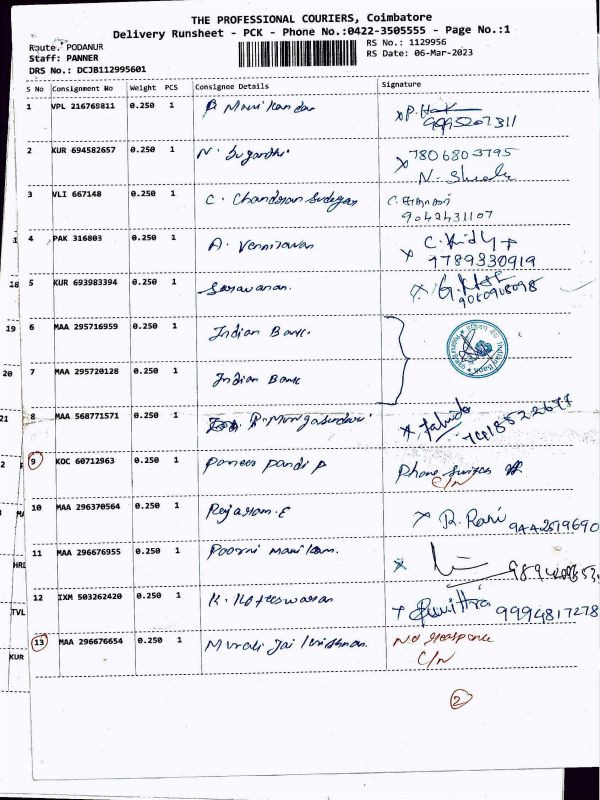 THE PROFESSIONAL COURIERS, Coimbatore
Delivery Runsheet - PCK - Phone No.:0422-3505555 - Page No.:1
Route: PODANUR
RS No.: 1129956
Staff: PANNER
RS Date: 06-Mar-2023
DRS No.: DCJB112995601
S No Consignment No Weight PCS Consignee Details Signature
1 VPL 216769811 0.250 1 P. Manikandan
9995207311
2 KUR 694582657 0.250 1 N. Sugandhi 7806803795
N.
3 VLI 667148 0.250 1 C. Chandran
9042431107
1 4 PAK 316803 0.250 1 A.
9789330919
18 5 KUR 693983394 0.250 1 Saravanan.
19 6 MAA 295716959 0.250 1 Indian Bank.
20 7 MAA 295720128 0.250 1 Indian Bank
21 8 MAA 568771571 0.250 1
2 9 KOC 60712963 0.250 1 Pandi P Phone
C/N
10 MAA 296370564 0.250 1 Rajaram. E R. Rani 9442519690
11 MAA 296676955 0.250 1 Poorni
HRD
12 IXM 503262420 0.250 1 K. Koteswaran 9994817278
TVL
13 MAA 296676654 0.250 1 Murali Jai Krishnan. No Response
KUR
C/N
2